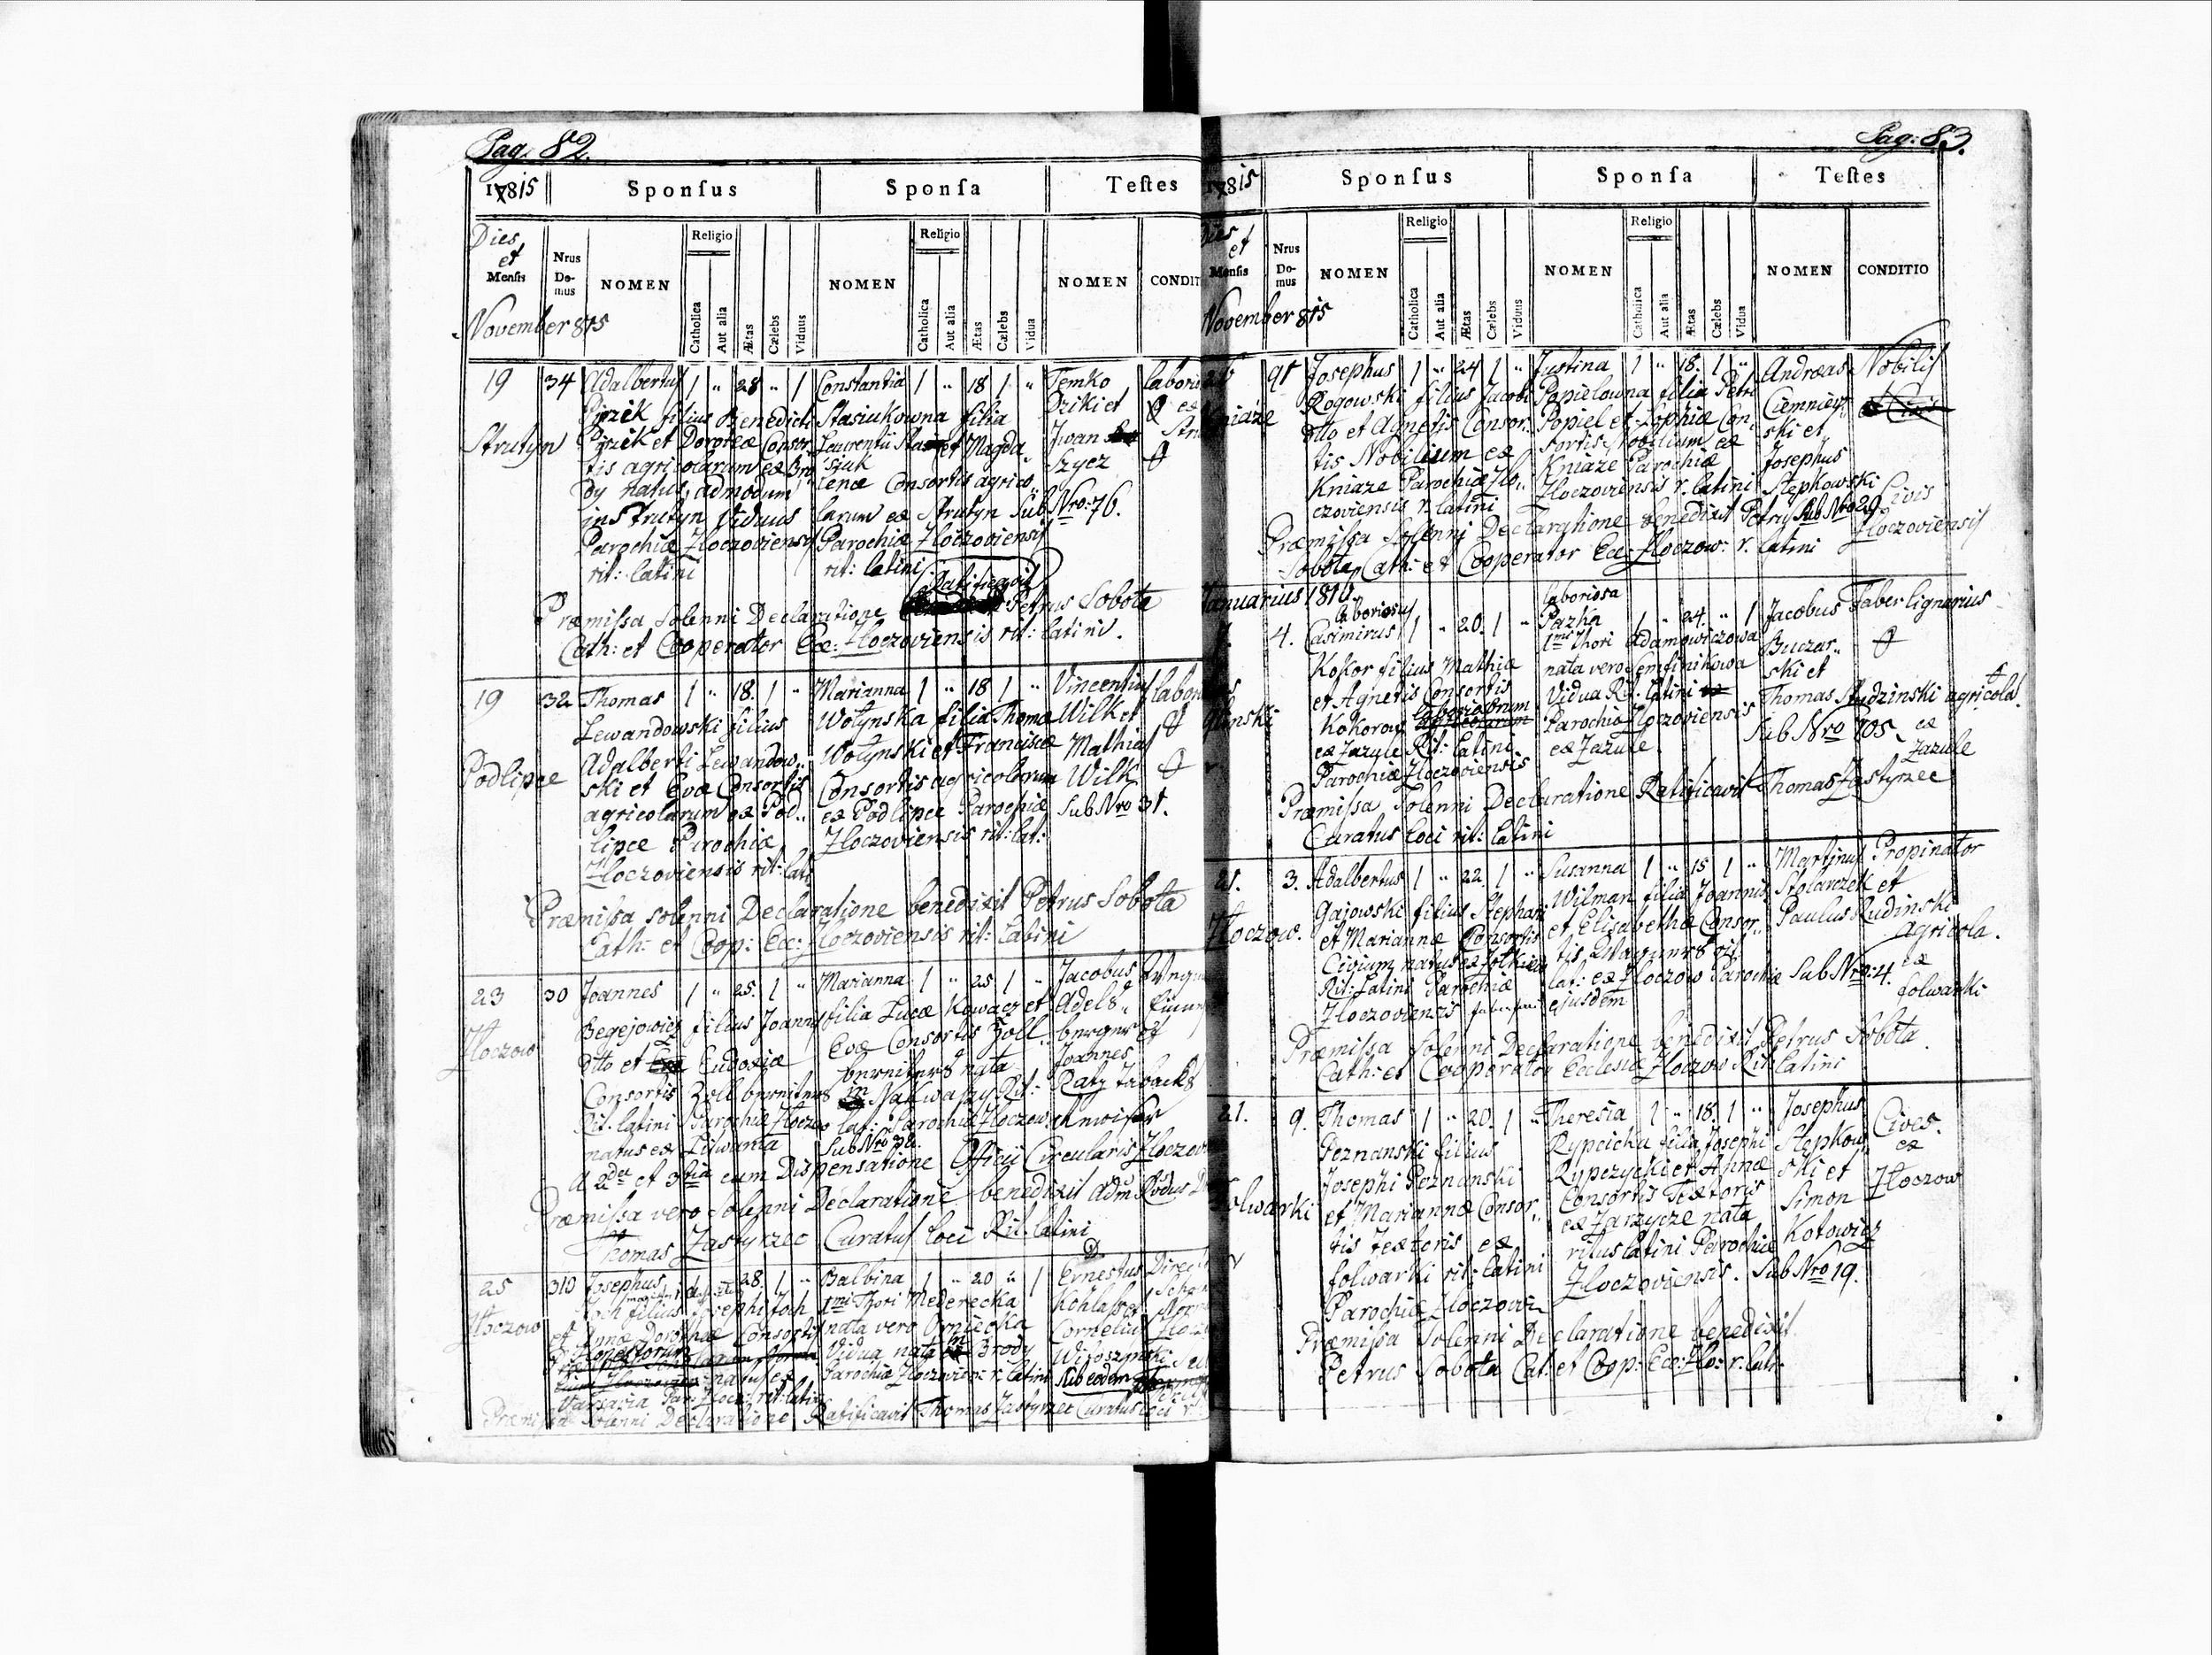 Pag. 82.
17815 Sponſus Sponſa Teſtes
Dies et Menſis Nrus Do-mus NOMEN Religio Catholica Aut alia Ætas Cælebs Viduus NOMEN Religio Catholica Aut alia Ætas Cælebs Vidua NOMEN CONDIT
November 815
19 34 Adalbertus 1 " 28 " 1 Constantia 1 " 18 1 " Temko labori
filius Benedicti Stasiukowna filia Dziki et
Strutyn et Doroteæ Consor Laurentii et Magda Iwan
tis agricolarum ex siuk Szycz
dy natus, admodum lenæ Consortis agrico
in Strutyn Viduus larum ex Strutyn Sub Nro: 76.
Parochiæ Zloczoviensis Parochiæ Zloczoviensis
rit: latini rit: latini
Præmiſsa Solenni Declaratione Ratificavit Petrus Sobota
Cath: et Cooperator Ecc: Zloczoviensis rit: latini.
19 32 Thomas 1 " 18. 1 " Marianna 1 " 18 1 " Vincentius labor
Lewandowski filius Wołynska filia Thomæ Wilk et
Adalberti Lewandow Wołynski et Franciscæ Mathias
Podlipce ski et Evæ Consortis Consortis agricolarum Wilk
agricolarum ex Pod ex Podlipce Parochiæ Sub Nro 31.
lipce Parochiæ Zloczoviensis rit: lat:
Zloczoviensis rit: lati
Præmiſsa solenni Declaratione benedixit Petrus Sobota
Cath: et Coop: Ecc: Zloczoviensis rit: latini
23 30 Joannes 1 " 25. 1 " Marianna 1 " 25 1 " Jacobus
Begejowicz filius Joannis filia Lucæ Kowacz et Adels
Zloczow dtto et Eudoxiæ Evæ Consortis Zoll
Consortis nata Joannes
Rit: latini Parochiæ Zloczow in Nakwaszy Rit: Raty Tabacks
natus ex Litwania lat: Parochiæ Zloczow:
Sub Nro 38.
A 2da et 3tia cum Dispensatione Officii Circularis Zloczov
Præmiſsa vero Solenni Declaratione benedixit Adm Rndus
Thomas Zastyrzec Curatus loci Rit: latini
25 310 Josephus 28. 1 " Balbina 1 " 20 " 1 Ernestus Direc
Joch filius Josephi Joch 1mi Thori Mederecka
Zloczow et Dorothæ Consortis nata vero
Honestorum Vidua nata in Brody
natus ex Parochiæ Zloczovien: r: latini Sub eodem
Varsavia Par: Zlocz: rit: latini
Præmiſsa Solenni Declaratione Ratificavit Thomas Zastyrzec Curatus loci r
Pag: 83.
17815 Sponſus Sponſa Teſtes
Dies et Menſis Nrus Do-mus NOMEN Religio Catholica Aut alia Ætas Cælebs Viduus NOMEN Religio Catholica Aut alia Ætas Cælebs Vidua NOMEN CONDITIO
November 815
91 Josephus 1 " 24 1 " Justina 1 " 18. 1 " Andreas Nobilis
Kniaze Rogowski filius Jacobi Popielowna filia Petri Ciemniew
dtto et Agnetis Consor Popiel et Sophiæ Con ski et
tis Nobilium ex sortis Nobilium ex Josephus
Kniaze Parochiæ Zlo Kniaze Parochiæ Stepkowski
czoviensis r: latini Zloczoviensis r: latini Sub Nro 29 Civis
Præmiſsa Solenni Declaratione benedixit Petrus Zloczoviensis
Sobota Cath: et Cooperator Ecc: Zloczow: r. latini
Januarius 1816.
laboriosus laboriosa
7. 4. Casimirus 1 " 20. 1 " Pazka 1 " 24. " 1 Jacobus Faber lignarius
Kokor filius Mathiæ 1mi Thori Adamowiczowa Buczar
et Agnetis Consortis nata vero Semſinikowa ski et
Kokorow laboriosorum Vidua Rit: latini Thomas Studzinski agricola
ex Zazule Rit: latini Parochiæ Zloczoviensis Sub Nro 105 ex
Parochiæ Zloczoviensis ex Zazule Zazule
Præmiſsa Solenni Declaratione Ratificavit Thomas Zastyrzec
Curatus loci rit: latini
21. 3. Adalbertus 1 " 22. 1 " Susanna 1 " 15 1 " Martinus Propinator
Gajowski filius Stephani Wilman filia Joannis Stolarczek et
Zloczow. et Mariannæ Consortis et Elisabethæ Consor Paulus Rudinski
Civium natus ex Zołkiew tis Agricola.
Rit: Latini Parochiæ lat: ex Zloczow Parochiæ Sub Nro: 4. ex
Zloczoviensis ejusdem folwarki
Præmiſsa Solenni Declaratione benedixit Petrus Sobota
Cath: et Cooperator Ecclesiæ Zloczow Rit: latini
21. 9. Thomas 1 " 20. 1 " Theresia 1 " 18. 1 " Josephus Cives.
Poznanski filius Rypcicka filia Josephi Stepkow ex
Josephi Poznanski Rypczycki et Annæ ski et Zloczow
Folwarki et Mariannæ Consor Consortis Textoris Simon
tis Textoris ex ex Zarzycze nata Kotowicz
folwarki rit: latini ritus latini Parochiæ
Parochiæ Zloczovien Zloczoviensis. Sub Nro 19.
Præmiſsa Solenni Declaratione benedixit
Petrus Sobota Cat. et Coop: Ecc: Zlo: r: lat: